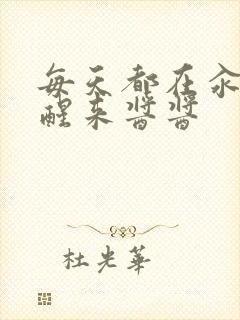 每天都在汆
醒来酱酱
杜光华